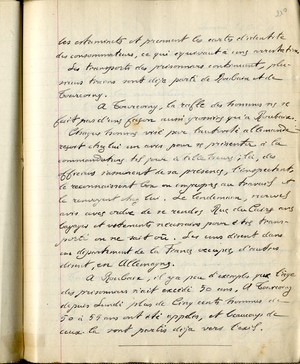 les estaminets et prennent les cartes d'identité
des consommateurs, ce qui équivaut à une arrestation.
Les transports des prisonniers continuent, plu-
sieurs trains sont déjà partis de Roubaix et de
Tourcoing.
A Tourcoing, la rafle des hommes ne se
fait pas d'une façon aussi grossière qu'à Roubaix.
Chaque homme visé par l'autorité allemande
reçoit chez lui un avis pour se présenter à la
commandanture tel jour à telle heure; là, des
officiers
le reconnaissent bon ou impropre au travail et
le renvoient chez lui. Le lendemain,
avis avec ordre de se rendre Rue de avec
bagages et vêtements nécessaires pour être trans-
porté on ne sait où. Les uns disent dans
un département de la France occupée, d'autres
disent, en Allemagne.
A Roubaix, il y a peu d'exemples que l'âge
des prisonniers n'ait excédé 50 ans. A Tourcoing
depuis Lundi plus de cinq cents hommes de
50 à 55 ans ont été appelés, et beaucoup de
ceux là sont partis déjà vers l'exil.